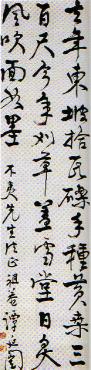 去年東坡拾瓦礫自種黃桑三
百尺今年刈草蓋雪堂日炙
風吹面如墨
先生法正祖菴譚延闓